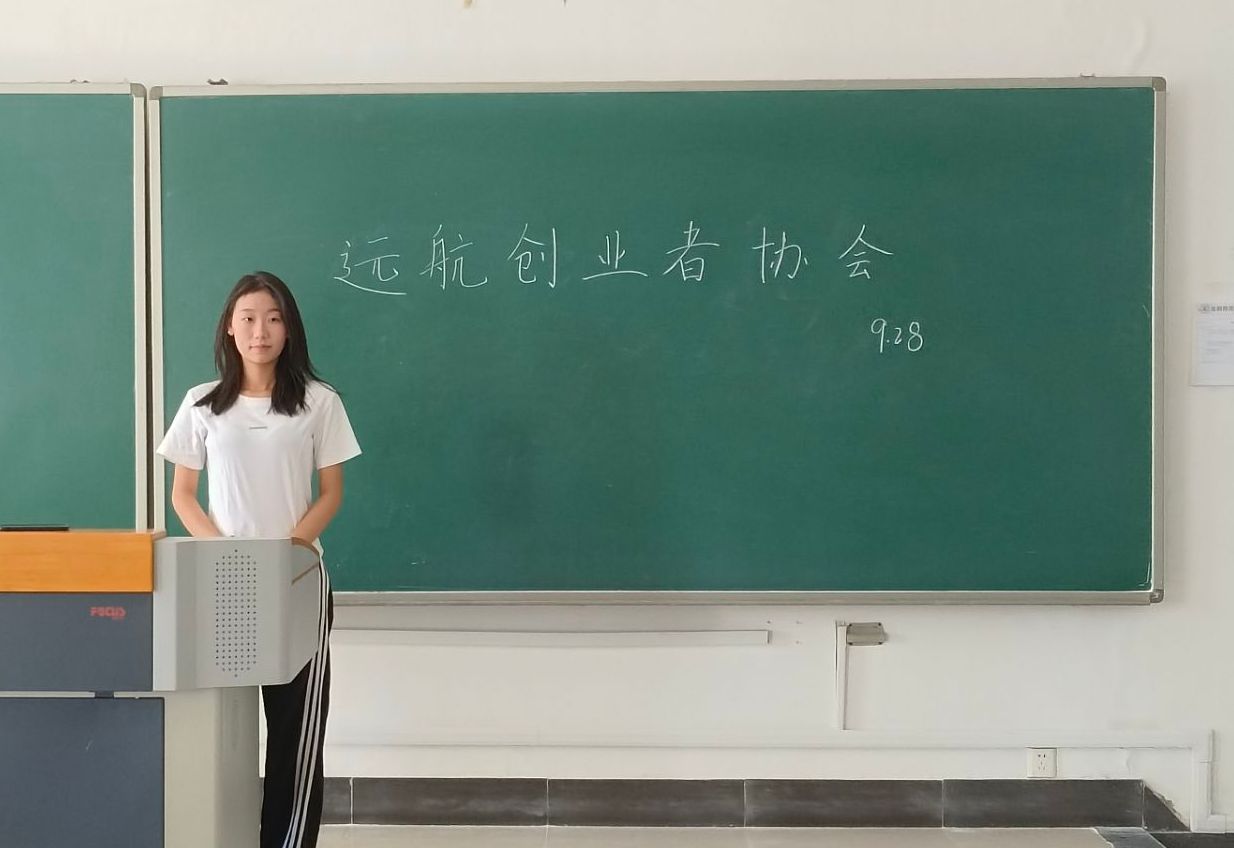 远航创业者协会
9.28
FOCUS